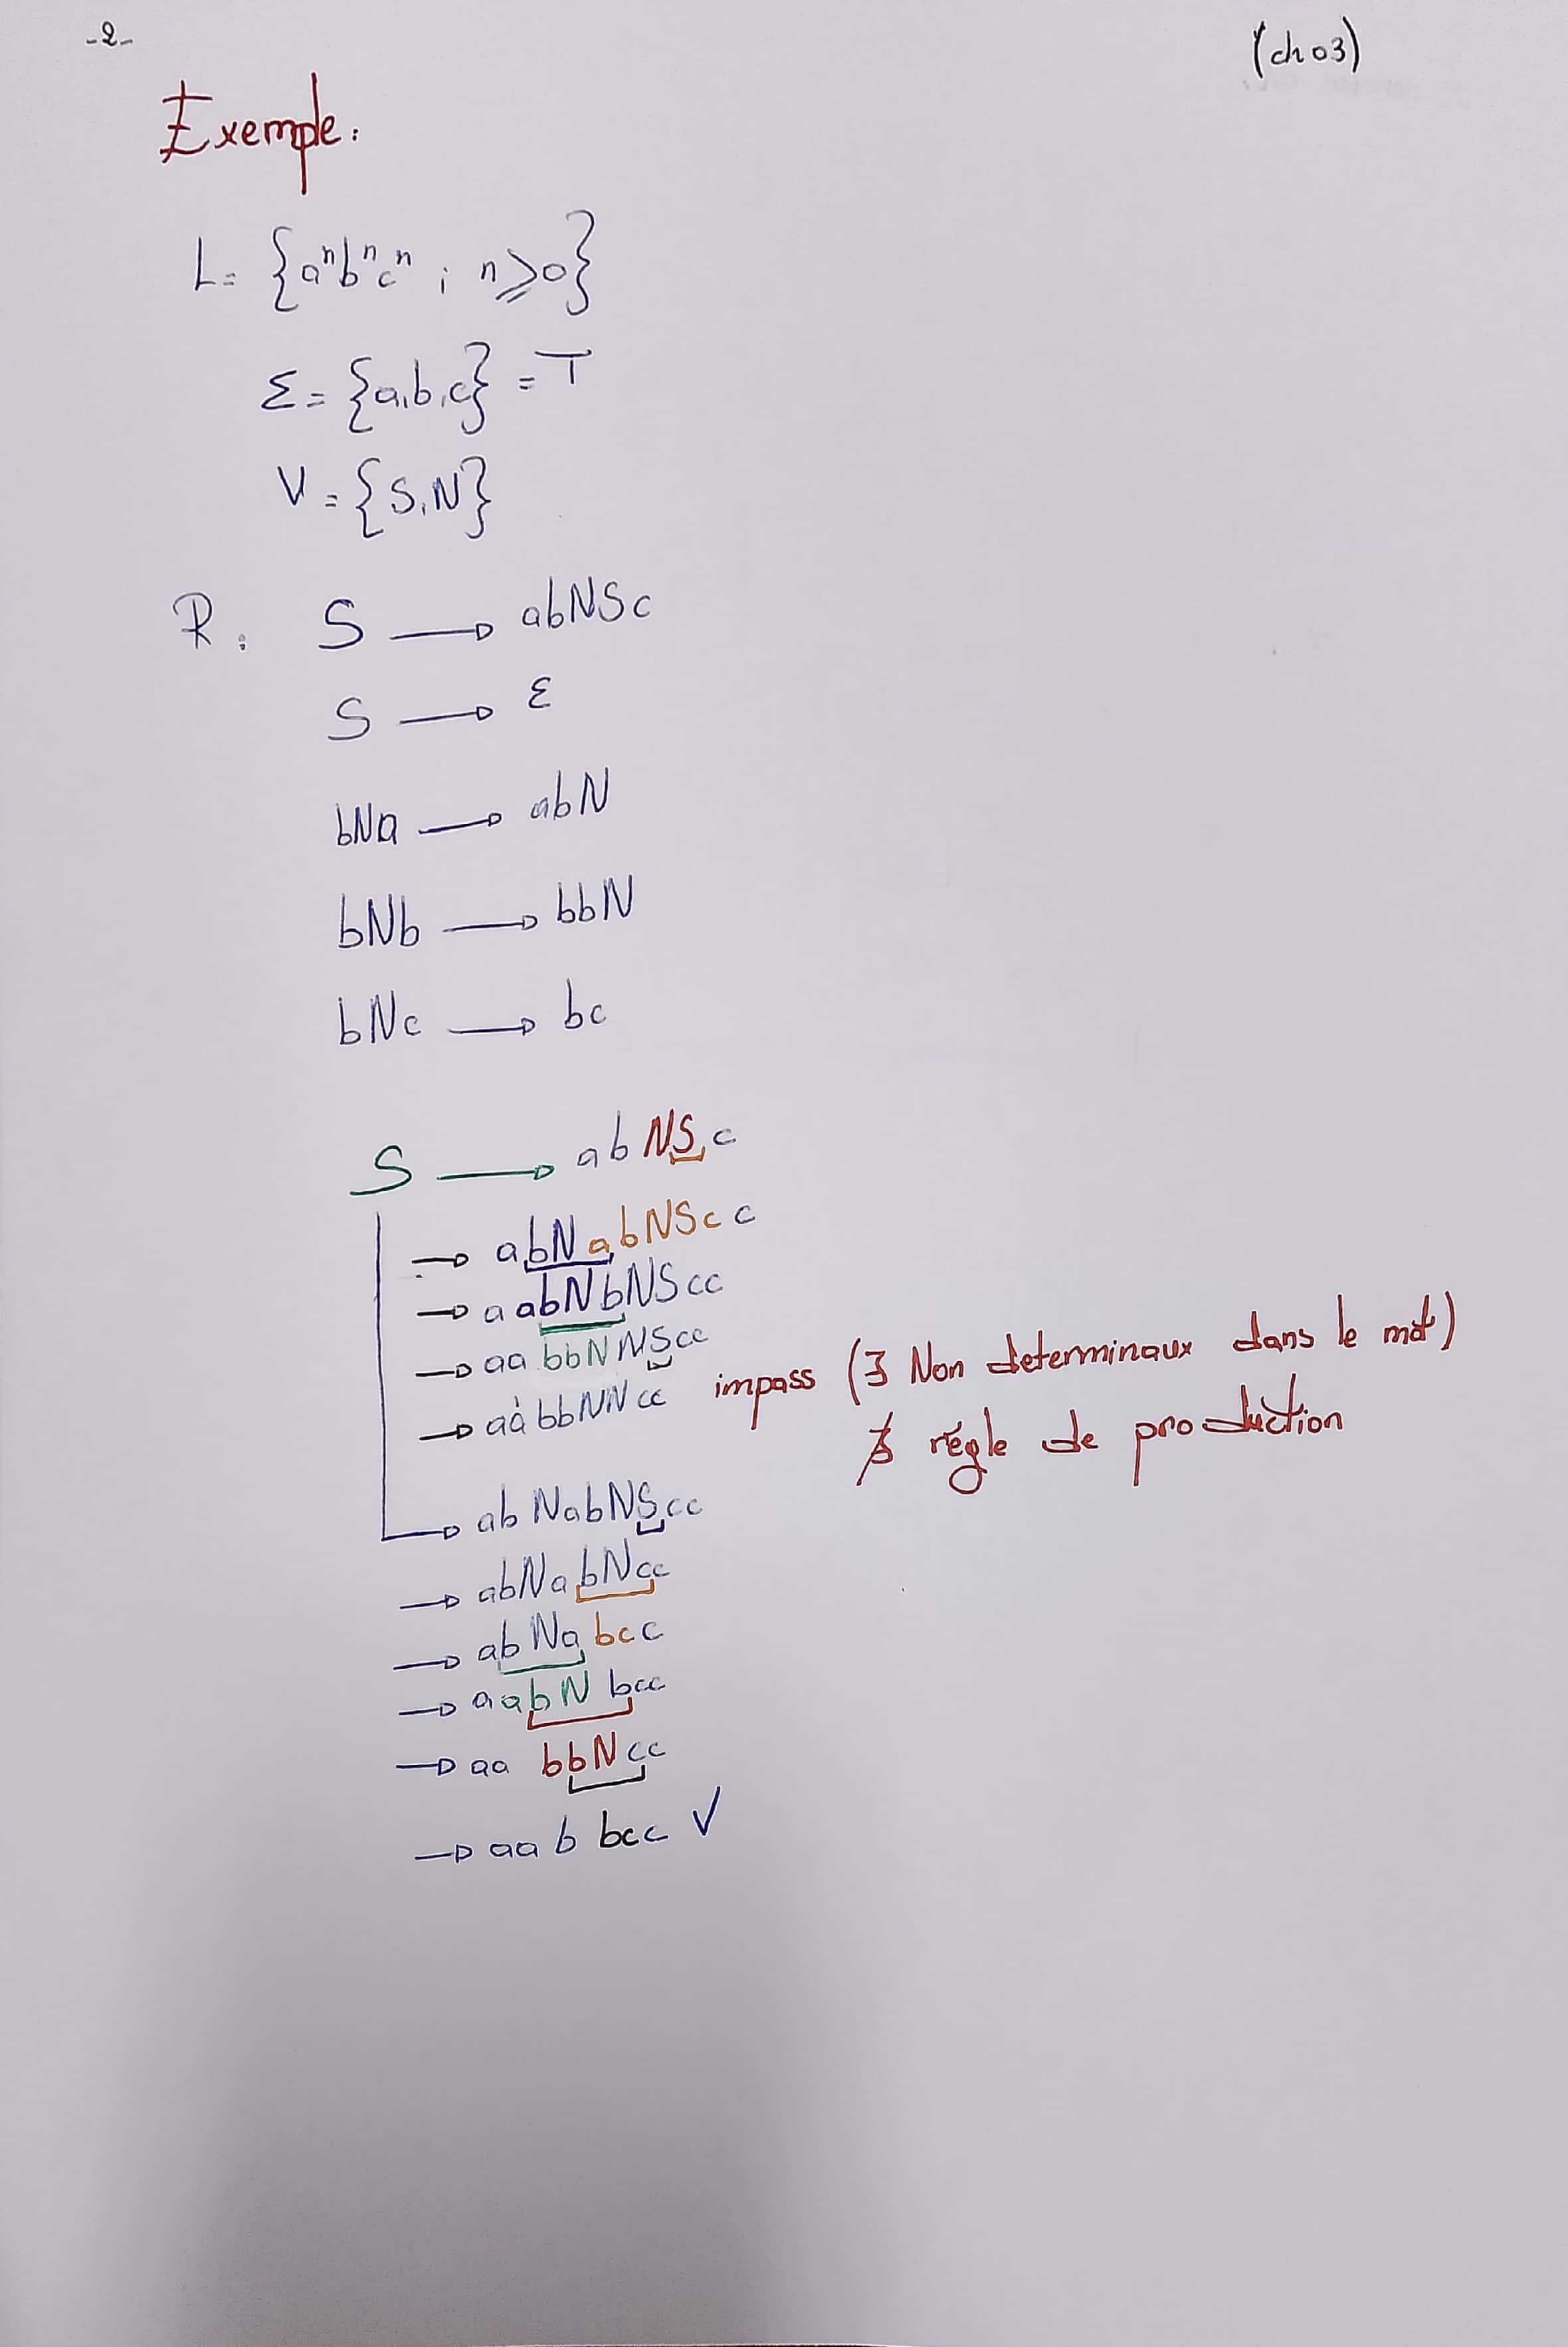 -2-
(ch 03)
Exemple:
L = {aⁿbⁿcⁿ ; n ⩾ 0}
Σ = {a,b,c} = T
V = {S,N}
R: S → abNSc
S → ε
bNa → abN
bNb → bbN
bNc → bc
S → abNSc
→ abNabNScc
→ aabNbNScc
→ aabbNNScc
→ aabbNNcc impass (∃ Non determinaux dans le mot)
∄ régle de production
→ abNabNScc
→ abNabNcc
→ abNabcc
→ aabNbcc
→ aa bbNcc
→ aab bcc ✓